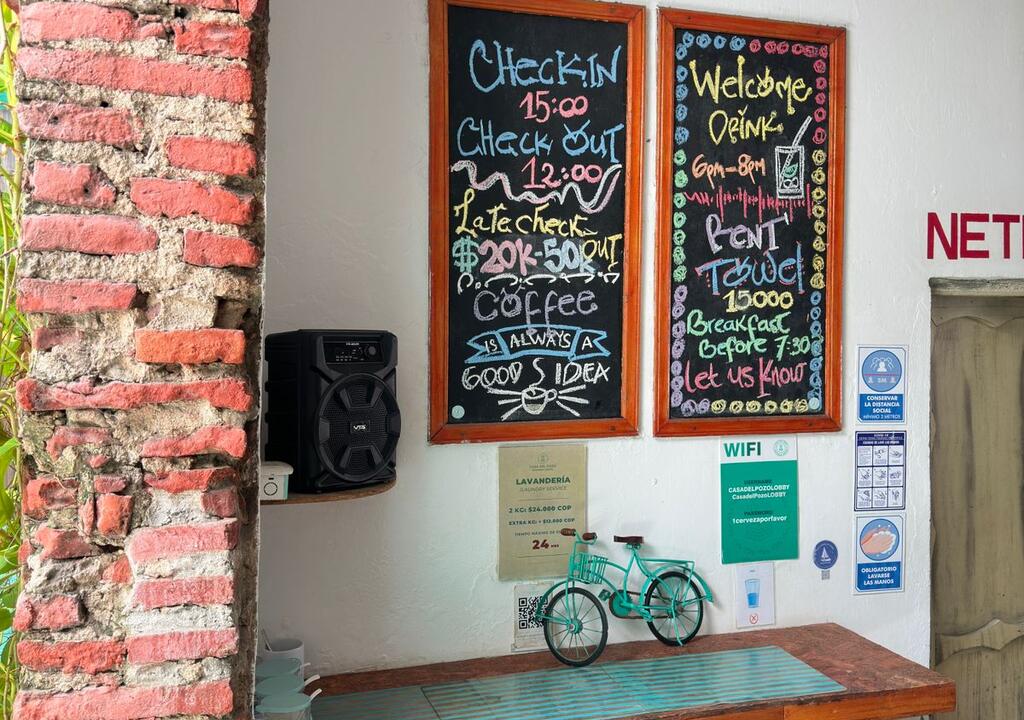 CHeckIN
15:00
CHeck OUT
12:00
Late check-
OUT
$20K-50K
COFFee
IS ALWAYS A
GOOD S IDEA
Welcome
DRINK
6pm-8pm
RENT
TOWel
15000
Breakfast
Before 7:30
Let us Know
NET
LAVANDERÍA
2 KG: $24.000 COP
24 HRS
WIFI
USERNAME
CASADELPOZOLOBBY
CasadelPozoLOBBY
PASSWORD
1cervezaporfavor
2M
CONSERVAR
LA DISTANCIA
SOCIAL
MÍNIMO 2 METROS
OBLIGATORIO
LAVARSE
LAS MANOS